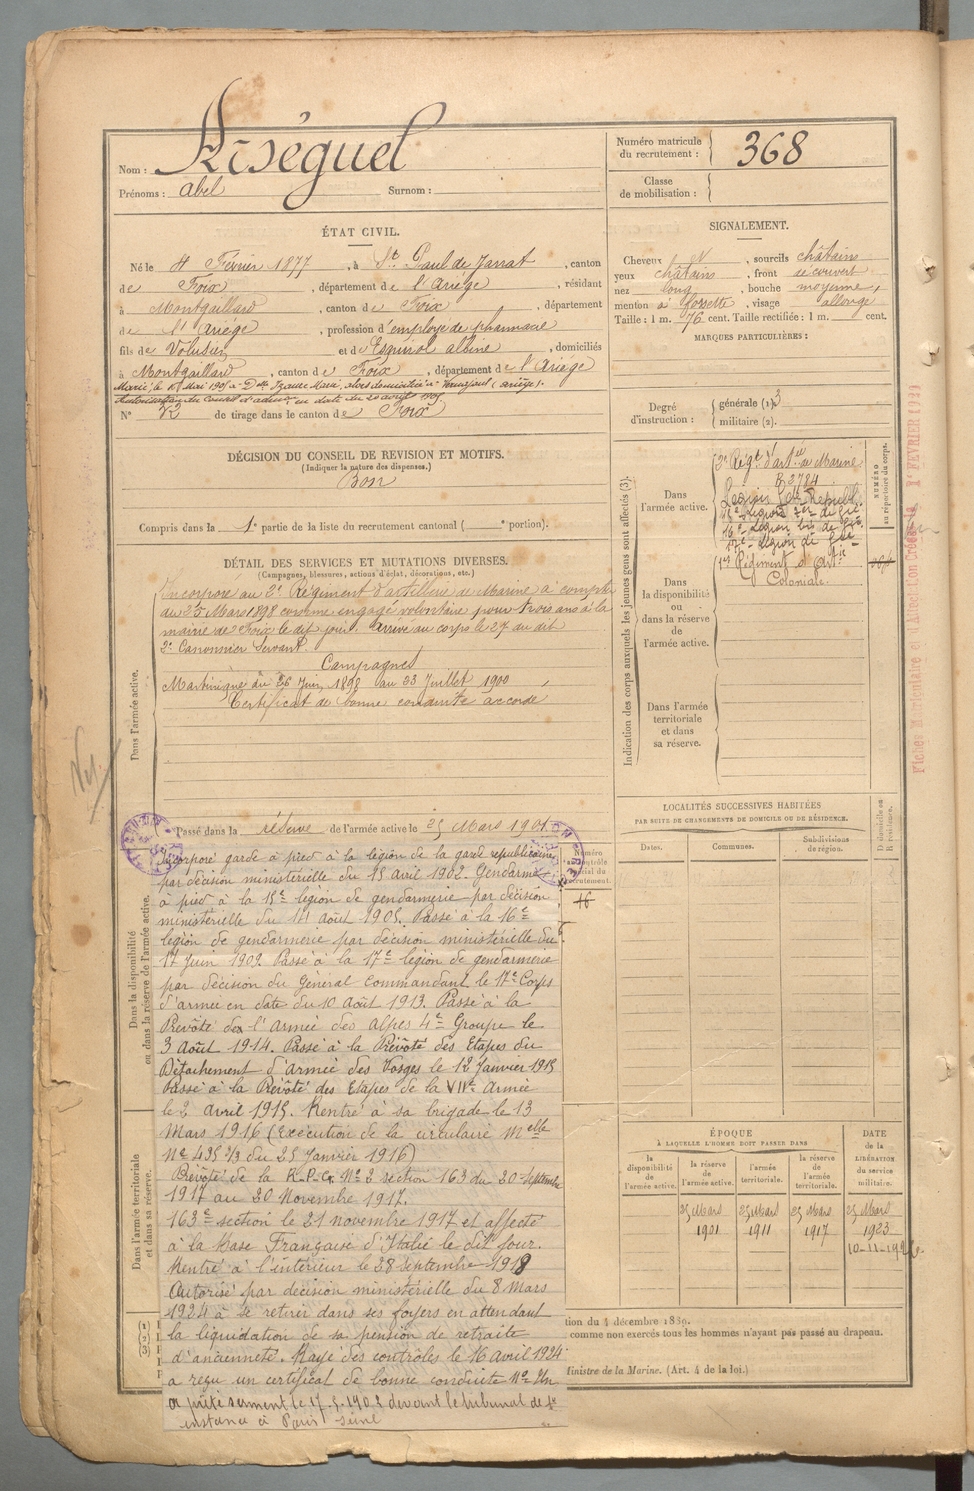 Nom : Riséguel
Prénoms : Abel Surnom :
Numéro matricule du recrutement : 368
Classe de mobilisation :
ÉTAT CIVIL.
Né le 4 Février 1877, à St Paul de Jarrat, canton
de Foix, département de l'Ariège, résidant
à Montgaillard, canton de Foix, département
de l'Ariège, profession d'employé de pharmacie
fils de Volusien et de Esquirol Albine, domiciliés
à Montgaillard, canton de Foix, département de l'Ariège
Marié, le Mai 1905 à Delle Izaure Marie, alors domiciliée à (Ariège).
Autorisation du Conseil d'admon en date du 20 avril 1905
N° 72 de tirage dans le canton de Foix
SIGNALEMENT.
Cheveux N, sourcils châtains
yeux châtains, front découvert
nez long, bouche moyenne,
menton à fossette, visage allongé
Taille : 1 m. 76 cent. Taille rectifiée : 1 m. cent.
MARQUES PARTICULIÈRES :
Degré d'instruction : générale (1). 3
militaire (2).
DÉCISION DU CONSEIL DE REVISION ET MOTIFS.
(Indiquer la nature des dispenses.)
Bon
Compris dans la 1e partie de la liste du recrutement cantonal ( e portion).
DÉTAIL DES SERVICES ET MUTATIONS DIVERSES.
(Campagnes, blessures, actions d'éclat, décorations, etc.)
Dans l'armée active.
Incorporé au 2e Régiment d'artillerie de Marine à compter
du 25 Mars 1898 comme engagé volontaire pour trois ans à la
mairie de Foix le dit jour. Arrivé au corps le 27 au dit
2e Canonnier Servant.
Campagnes
Martinique du 26 Juin 1898 au 23 Juillet 1900
Certificat de bonne conduite accordé
Indication des corps auxquels les jeunes gens sont affectés (3).
Dans l'armée active.
2e Régt d'artie de Marine
B 2784
Légion Gde Républ.
15e Légion de Gie
16e Légion bis de Gie
17e Légion de Gie
NUMÉRO au répertoire du corps.
Dans la disponibilité ou dans la réserve de l'armée active.
1er Régiment d'artie
Coloniale.
Dans l'armée territoriale et dans sa réserve.
Passé dans la réserve de l'armée active le 25 Mars 1901
Dans la disponibilité ou dans la réserve de l'armée active.
Incorporé garde à pied à la légion de la garde républicaine
par décision ministérielle du 15 Avril 1902. Gendarme
à pied à la 15e légion de gendarmerie par décision
ministérielle du 11 août 1905. Passé à la 16e
légion de gendarmerie par décision ministérielle du
17 Juin 1909. Passé à la 17e légion de gendarmerie
par décision du Général Commandant le 17e Corps
d'armée en date du 10 Août 1913. Passé à la
Prévôté de l'Armée des Alpes 4e Groupe le
3 Août 1914. Passé à la Prévôté des Etapes du
Détachement d'Armée des Vosges le 12 Janvier 1915
Passé à la Prévôté des Etapes de la VIIe Armée
le 2 avril 1915. Rentré à sa brigade le 13
Mars 1916 (Exécution de la circulaire Melle
N° 495 1/3 du 25 Janvier 1916)
Prévôté de la R.P.G. N° 2 section 163 du 20 Septembre
1917 au 20 Novembre 1917.
163e section le 21 novembre 1917 et affecté
à la Base Française d'Italie le dit jour.
Rentré à l'intérieur le 28 septembre 1918
Autorisé par décision ministérielle du 8 Mars
1924 à se retirer dans ses foyers en attendant
la liquidation de sa pension de retraite
d'ancienneté. Rayé des contrôles le 16 Avril 1924
a reçu un certificat de bonne conduite N° Un
a prêté serment le 17.5.1902 devant le tribunal de 1e
instance à Paris Seine
Dans l'armée territoriale et dans sa réserve.
LOCALITÉS SUCCESSIVES HABITÉES
PAR SUITE DE CHANGEMENTS DE DOMICILE OU DE RÉSIDENCE.
Dates. Communes. Subdivisions de région. D domicile ou R résidence.
ÉPOQUE
À LAQUELLE L'HOMME DOIT PASSER DANS
la disponibilité de l'armée active. la réserve de l'armée active. l'armée territoriale. la réserve de l'armée territoriale.
DATE de la LIBÉRATION du service militaire.
25 Mars 1901 25 Mars 1911 25 Mars 1917 25 Mars 1923
tion du 4 décembre 1889.
comme non exercés tous les hommes n'ayant pas passé au drapeau.
Ministre de la Marine. (Art. 4 de la loi.)